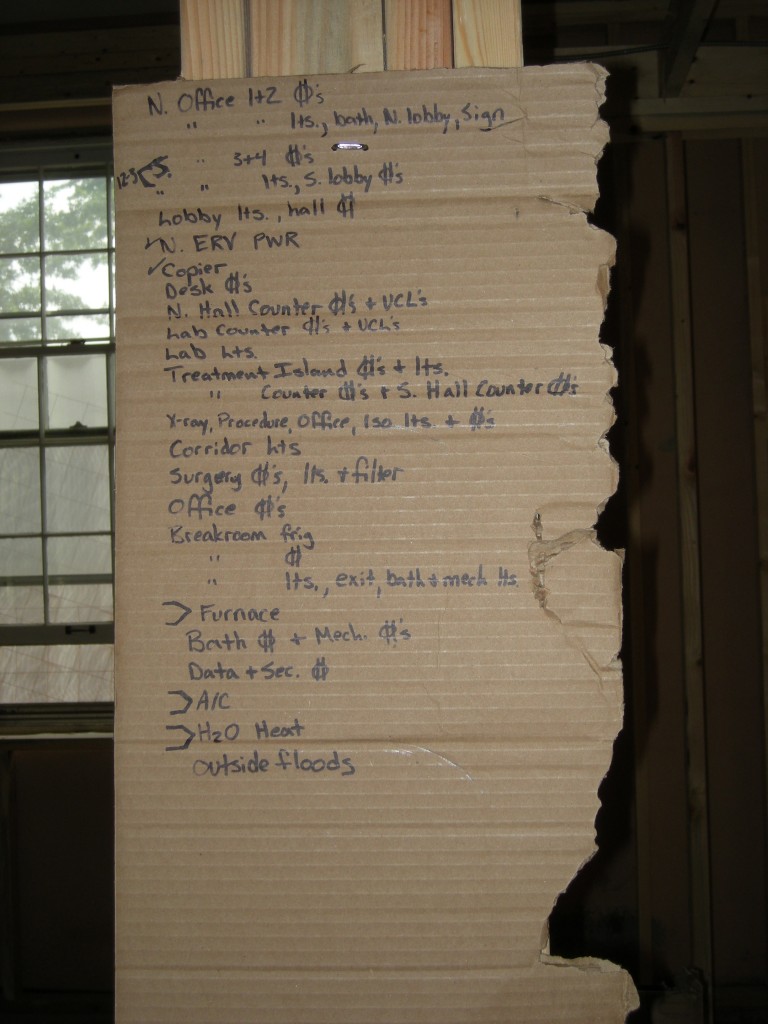 N. Office 1+2 ⏀'s
" " lts., bath, N. lobby, Sign
12-3 S. " 3+4 ⏀'s
" " lts., S. lobby ⏀'s
Lobby lts., hall ⏀
✓N. ERV PWR
✓Copier
Desk ⏀'s
N. Hall Counter ⏀'s + UCL's
Lab Counter ⏀'s + UCL's
Lab Lts.
Treatment Island ⏀'s + lts.
" Counter ⏀'s + S. Hall Counter ⏀'s
X-ray, Procedure, Office, Iso lts. + ⏀'s
Corridor Lts
Surgery ⏀'s, lts. + filter
Office ⏀'s
Breakroom frig
" ⏀
" lts., exit, bath + mech lts.
> Furnace
Bath ⏀ + Mech. ⏀'s
Data + Sec. ⏀
> A/C
> H2O Heat
outside floods